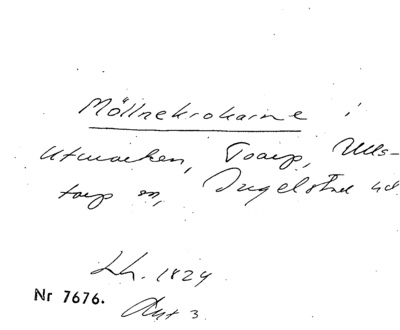 Möllnekrokarne i
Utmarken, Toarp, Ulls-
torp sn, Ingelstad hd.
Lh. 1824
Nr 7676.
Akt 3